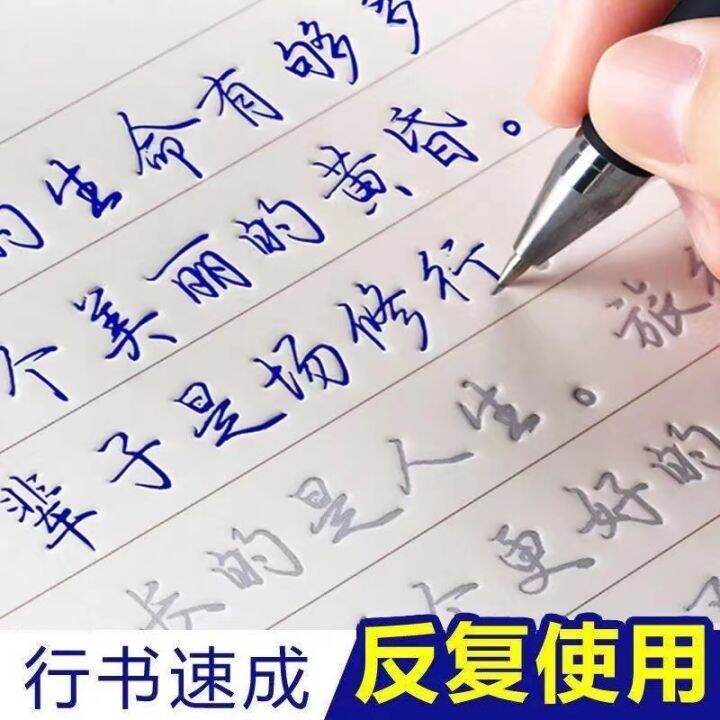 的生命有够多
个美丽的黄昏。
辈子是场修行
长的是人生。旅
个更好的
行书速成
反复使用